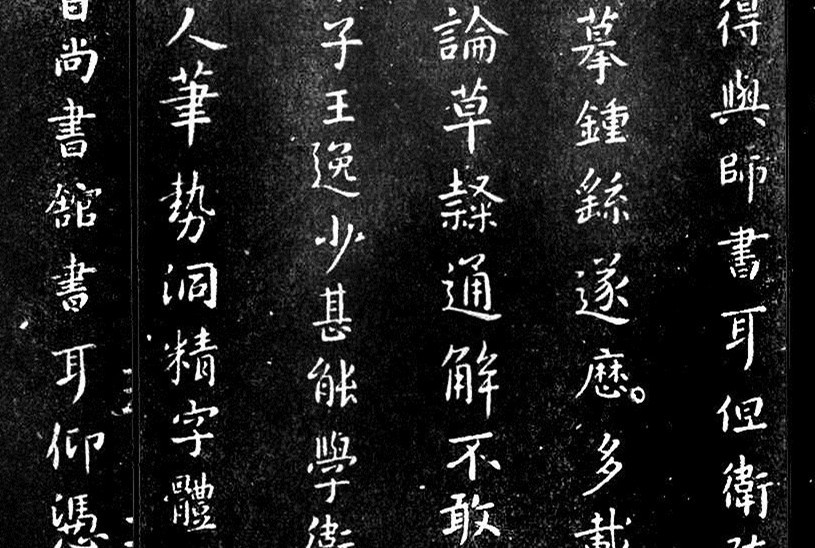 得與師書耳但衛
摹鍾繇遂歷。多載
論草隸通解不敢
子王逸少甚能學衛
人筆勢洞精字體
尚書館書耳仰憑